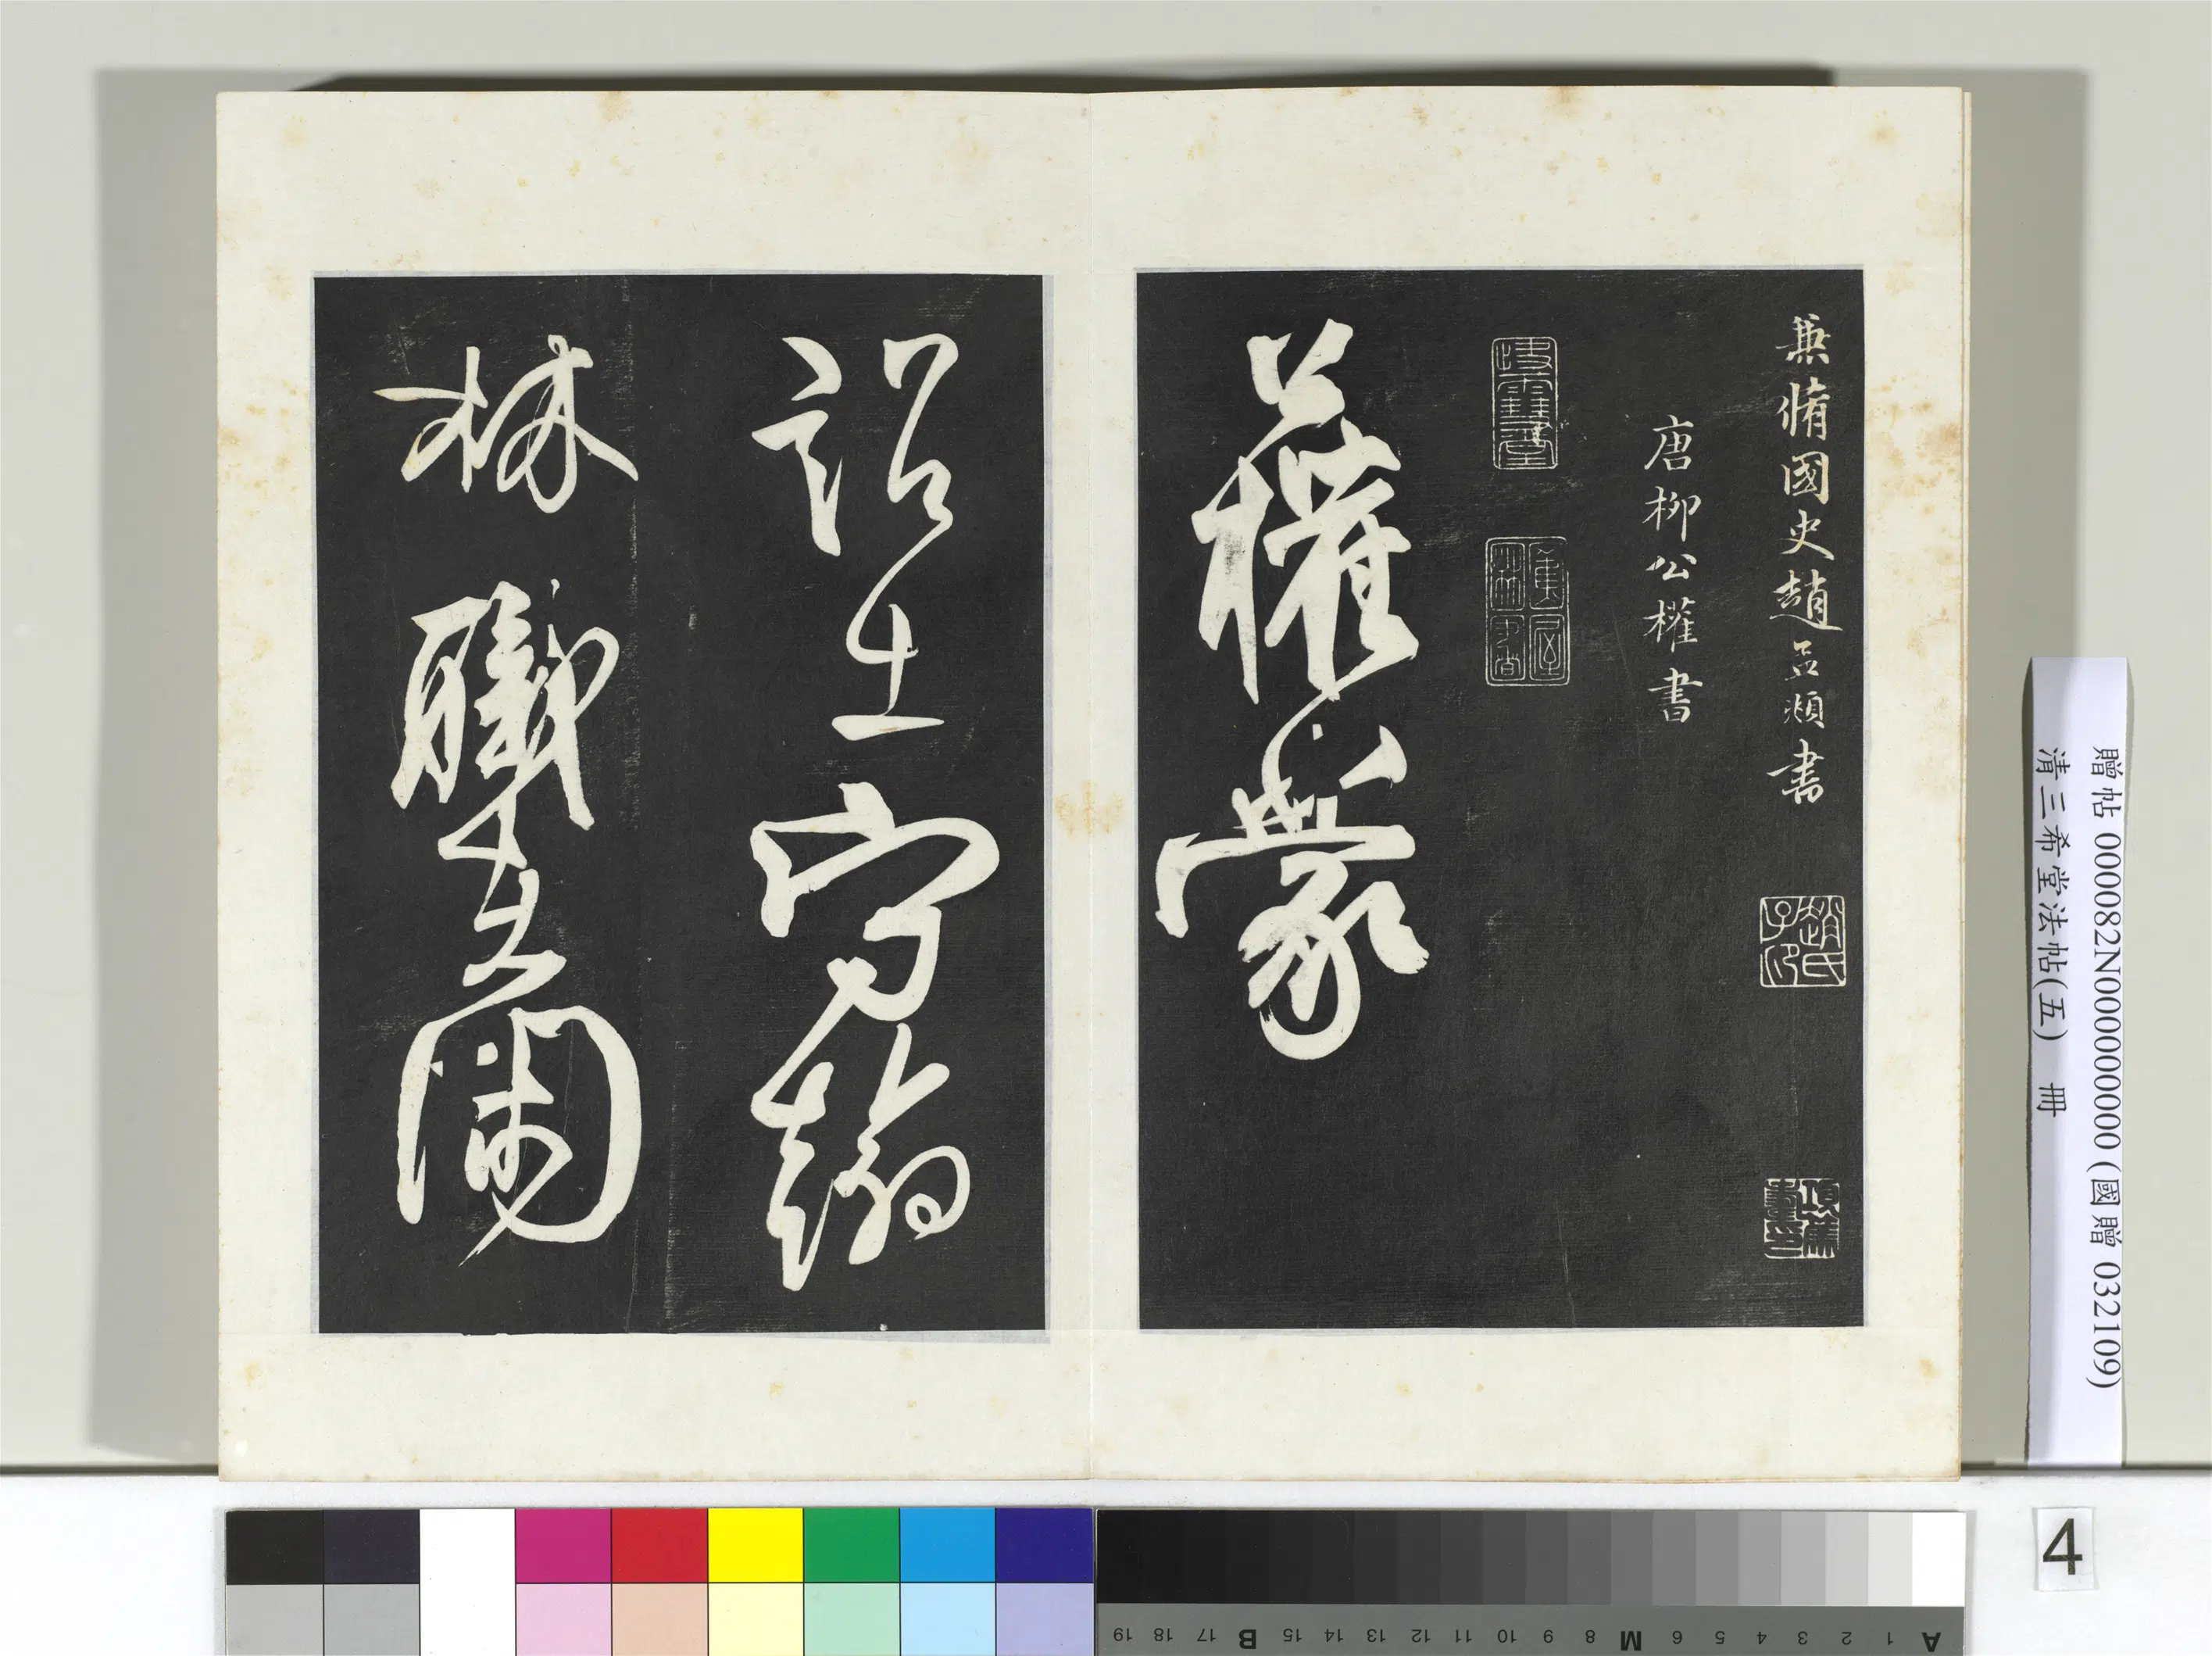 兼脩國史趙孟頫書
趙氏子昂
唐柳公權書
公權蒙
詔出守翰
林職在閑
贈帖 000082N000000000 (國贈 032109)
清三希堂法帖(五) 冊
4
A 1 2 3 4 5 6 M 8 9 10 11 12 13 14 15 B 17 18 19